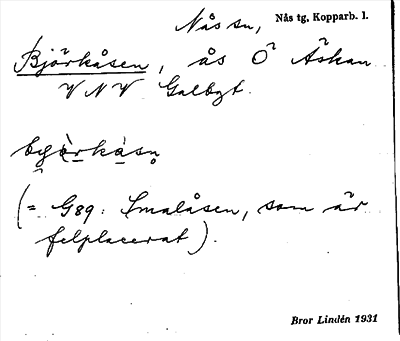 Nås sn, Nås tg, Kopparb. l.
Björkåsen, ås Ö Åskan
VNV Galbyt.
(= G89: Smalåsen, som är
felplacerat).
Bror Lindén 1931